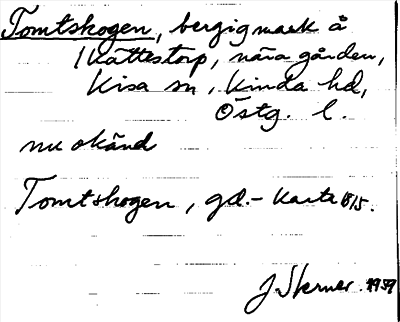 Tomtskogen, bergig mark å
1 Kättestorp, nära gården,
Kisa sn, Kinda hd,
Östg. l.
nu okänd
Tomtskogen, gd.- karta 1815.
J. Sterner. 1939